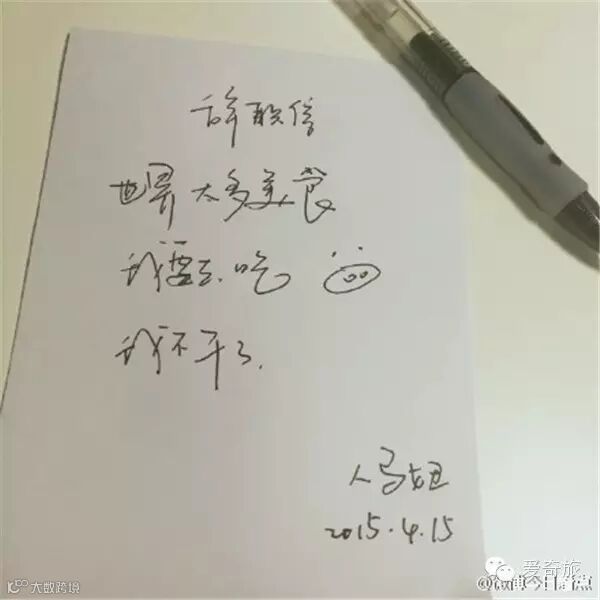 辞职信
世界太多美食
我要去吃
我不干了.
人马妞
2015.4.15
爱奇旅
大数跨境